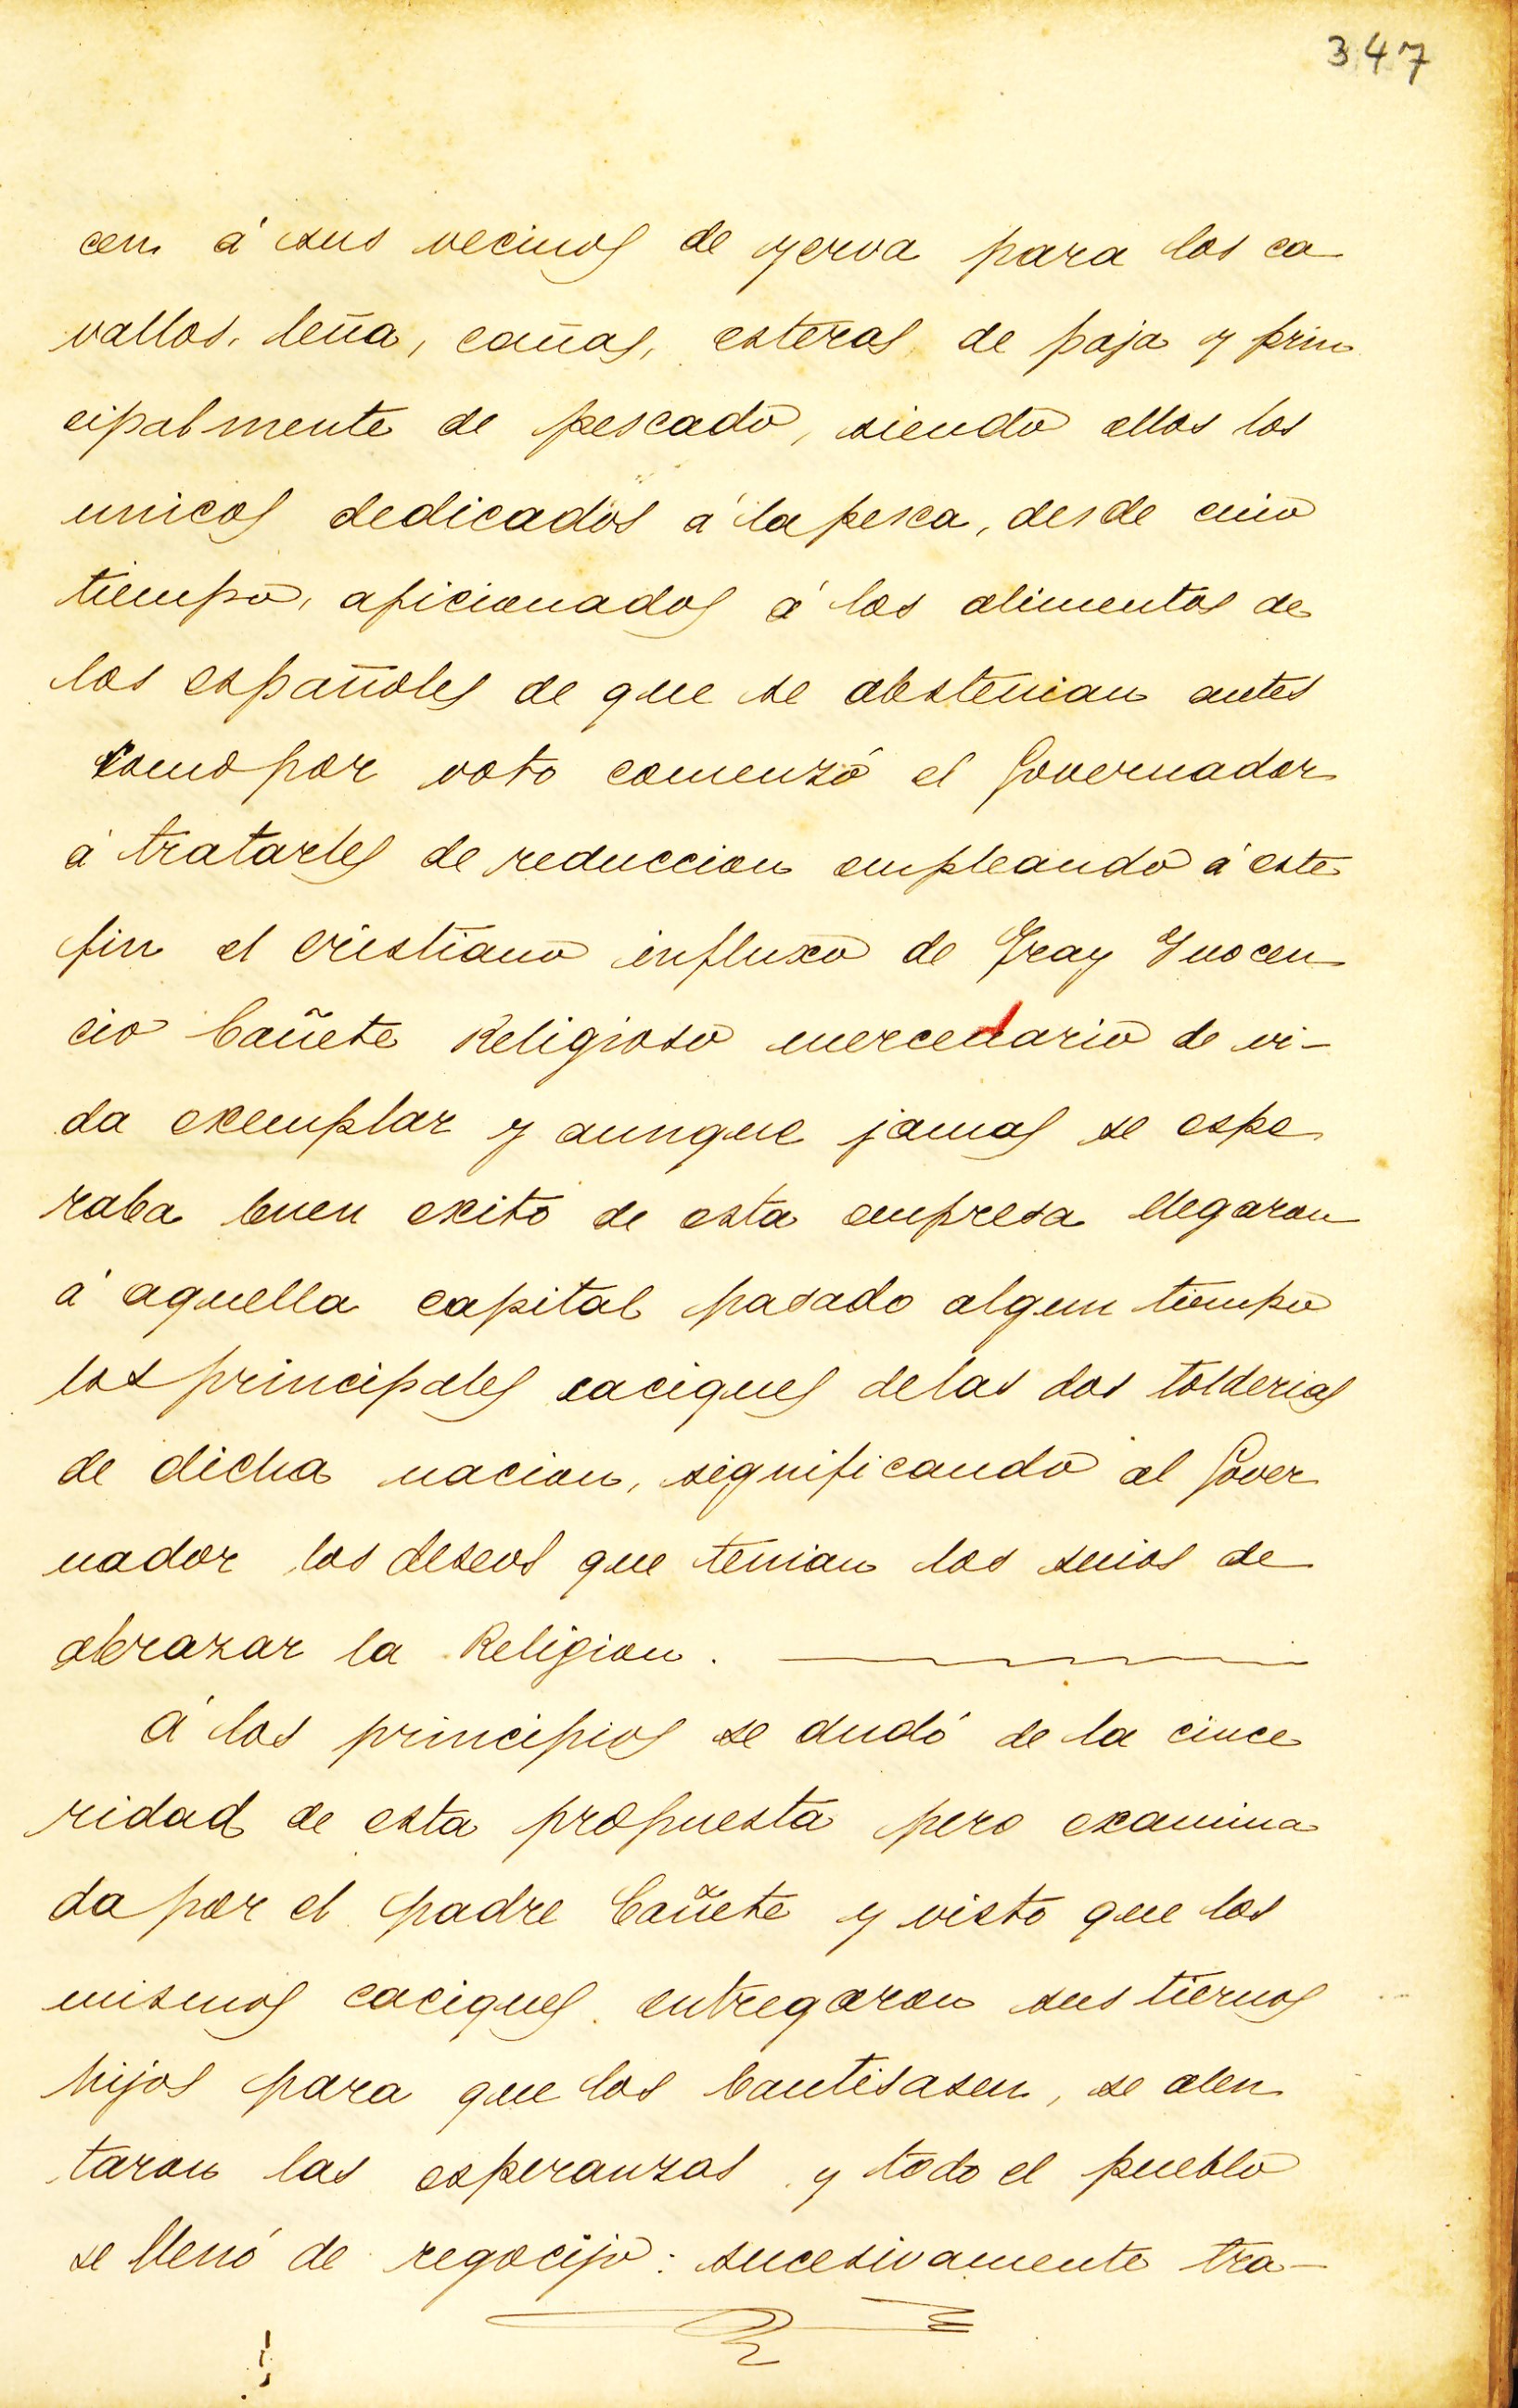 347
cen á sus vecinos de yerva para los ca
vallos, leña, cañas, esteras de paja y prin
cipalmente de pescado, siendo ellos los
unicos dedicados á la pesca, desde cuio
tiempo, aficionados á los alimentos de
los españoles de que se abstenian antes
como por voto comenzó el Governador
á tratarles de reduccion empleando á este
fin el cristiano influxo de Fray Inocen
cio Cañete Religioso mercedario de vi-
da exemplar y aunque jamas se espe
raba buen exito de esta empresa llegaron
á aquella capital pasado algun tiempo
los principales caciques de las dos tolderias
de dicha nacion, significando al Gover
nador los deseos que tenian los suios de
abrazar la Religion.
á los principios se dudó de la cince
ridad de esta propuesta pero examina
da por el padre Cañete y visto que los
mismos caciques entregaron sus tiernos
hijos para que los bautisasen, se alen
taron las esperanzas y todo el pueblo
se llenó de regocijo: sucesivamente tra-